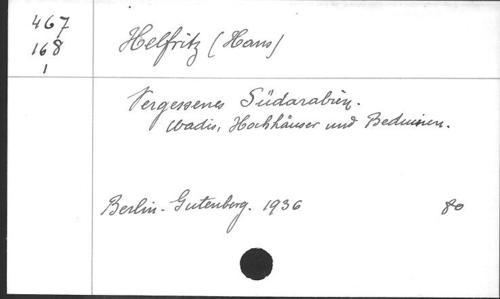 467
168
1
Helfritz (Hans)
Vergessenes Südarabien.
Wadis, Hochhäuser und Beduinen.
Berlin - Gutenberg. 1936 80